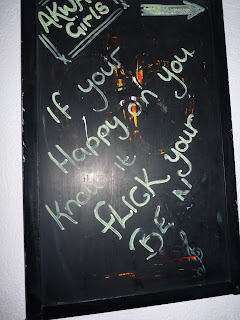 AKWA
Girls
If your
Happy on you
Know it
FLICK your
BE